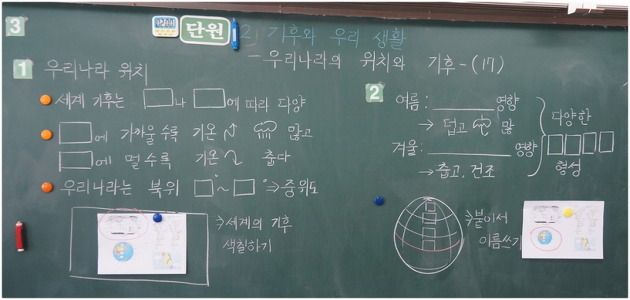 3 단원 2. 기후와 우리 생활
- 우리나라의 위치와 기후 - (17)
1 우리나라 위치
세계 기후는 □나 □에 따라 다양
□에 가까울수록 기온↗ 많고
□에 멀수록 기온↘ 춥다
우리나라는 북위 □°~□° ⇒ 중위도
⇒ 세계의 기후
색칠하기
2
여름: ________ 영향
→ 덥고 많
겨울: ________ 영향
→ 춥고, 건조
다양한
□□□□
형성
⇒ 붙여서
이름쓰기